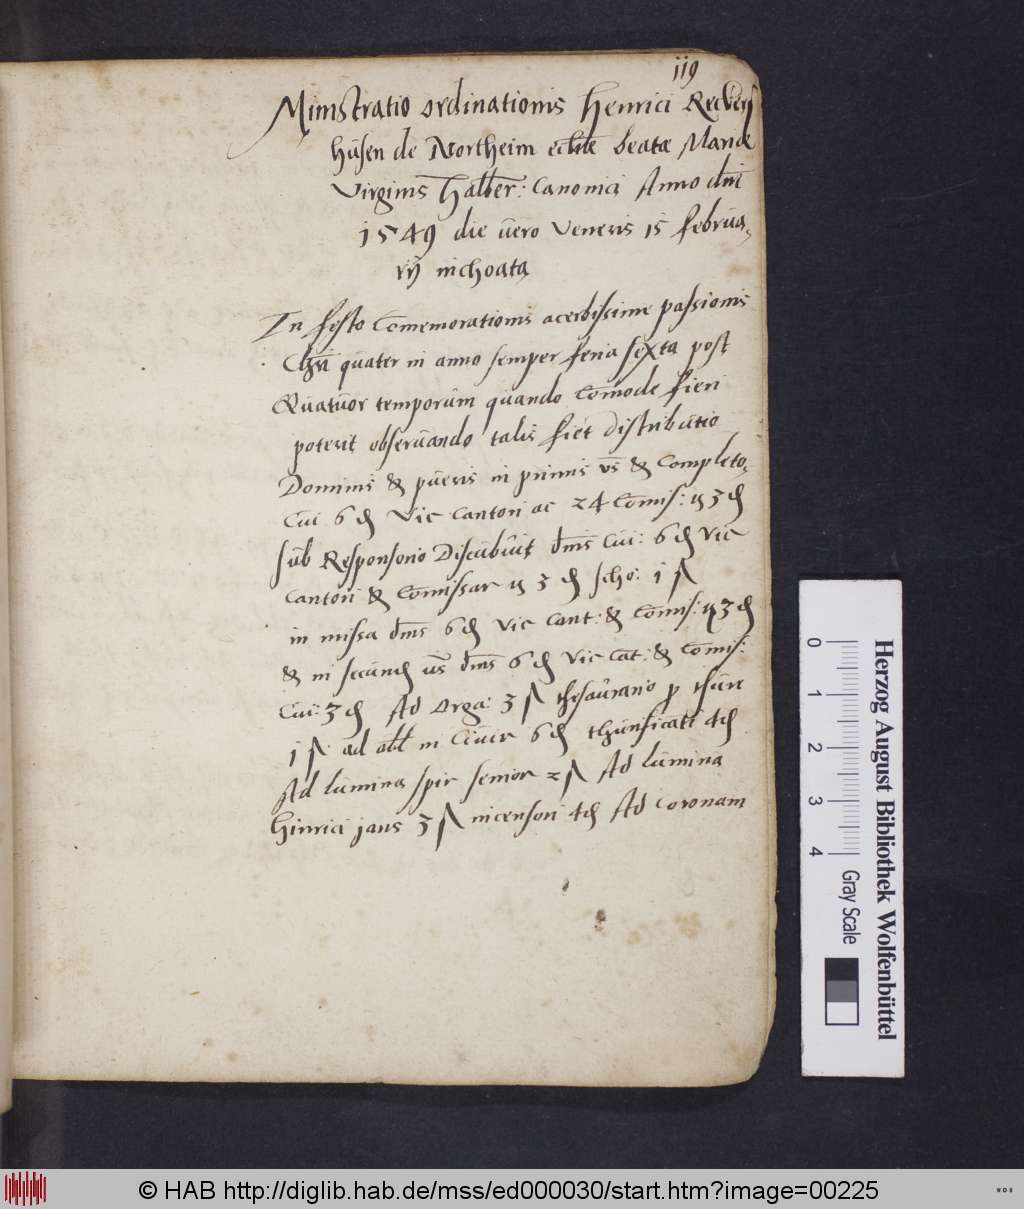 119
Ministratio ordinationis Henrici Reckers
husen de Northeim eccl̄ie beatæ Mariæ
Virginis Halber: Canonici Anno dn̄i
1549 die vero Veneris 15 februa,
rij inchoata
In festo Com̄emorationis acerbissime passionis
Chr̄i quater in anno semper feria sexta post
Quatuor temporum quando Com̄ode fieri
poterit observando talis fiet distributio
Dominis & pueris in primis vs̄ & Completo,
Cui 6 ₰ Vic Cantori ac 24 Com̄is: 3 ₰
sub Responsorio Discubuit dn̄is Cui: 6 ₰ Vic
Cantori & Com̄issar 3 ₰ scho: 1 ß
in missa dn̄is 6 ₰ Vic Cant: & Com̄is: 3 ₰
& in secund vs̄ dn̄is 6 ₰ Vic Cāt: & Com̄is:
Cui: 3 ₰ Ad Orga: 3 ß thesaurario p thure
1 ß ad obl̄ in 6 ₰ thurificati 4 ₰
Ad lumina spir senior 2 ß Ad lumina
Hinrici jans 3 ß incensori 4 ₰ Ad coronam
Herzog August Bibliothek Wolfenbüttel
0 1 2 3 4 Gray Scale
© HAB http://diglib.hab.de/mss/ed000030/start.htm?image=00225